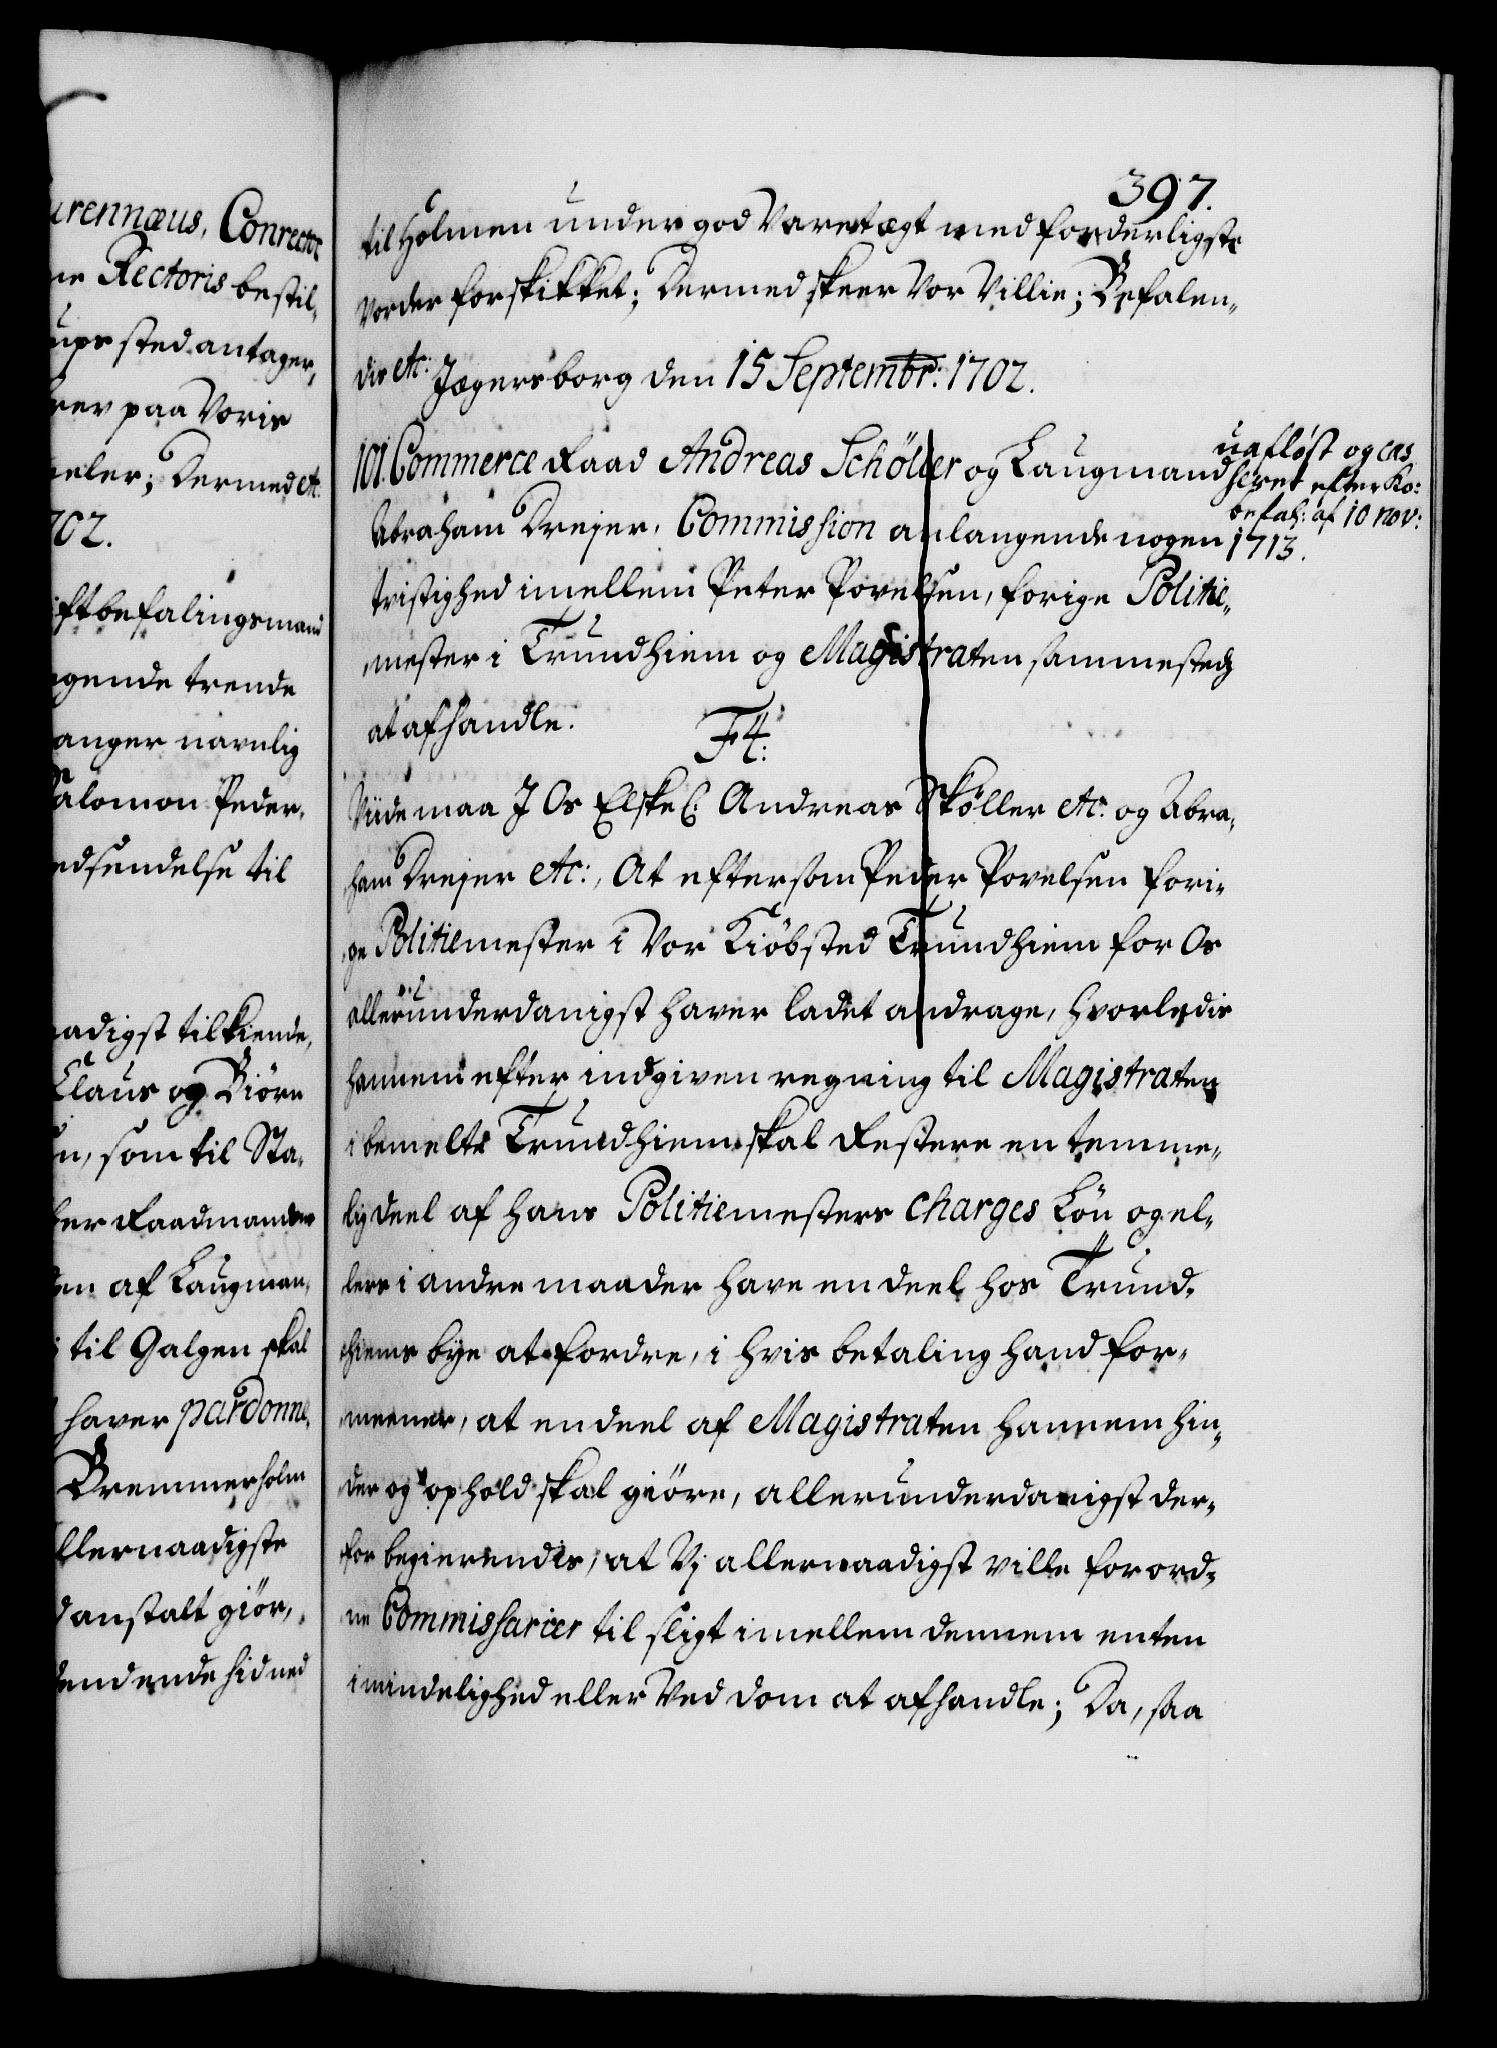 urennæus, Conrector
ne Rectoris bestil-
ups sted antager,
brev paa Voris
seler; Dermed etc:
702.
iftbefalingsmand
gende trende
anger navnlig
Salomon Peder-
edsendelse til
aadigst tilkiende,
Claus og Biörn
n, som til Sta-
her Raadmænder
en af Laugman-
til Galgen skal
haver pardonne-
Bremmerholm
llernaadigste
d anstalt giör,
sendende hid ned
397.
til Holmen under god Varetægt med forderligste
vorder forskikket; Dermed skeer Vor Villie; Befalen-
dis etc: Jægersborg den 15 Septembr: 1702.
101. Commerce Raad Andreas Schöller og Laugmand
Abraham Drejer, Commission anlangende nogen
tvistighed imellem Peter Povelsen, forige Politie-
mester i Trundhiem og Magistraten sammesteds
at afhandle.
uafløst og cas
seret efter Ko:
befal: af 10 nov:
1713.
F4:
Viide maa J Os Elskel: Andreas Sköller etc: og Abra-
ham Drejer etc:, At eftersom Peder Povelsen fori-
ge Politiemester i Vor Kiöbsted Trundhiem for Os
allerunderdanigst haver ladet andrage, hvorledis
hannem efter indgiven regning til Magistraten
i bemelte Trundhiem skal Restere en temme-
lig deel af hans Politiemesters charges Lön og el-
lers i andre maader have en deel hos Trund-
hiems bye at fordre, i hvis betaling hand for-
meener, at en deel af Magistraten hannem hin-
der og ophold skal giöre, allerunderdanigst der-
for begierendis, at Vj allernaadigst ville forord-
ne Commissarier til sligt imellem dennem enten
i mindelighed eller ved dom at afhandle; Da, saa